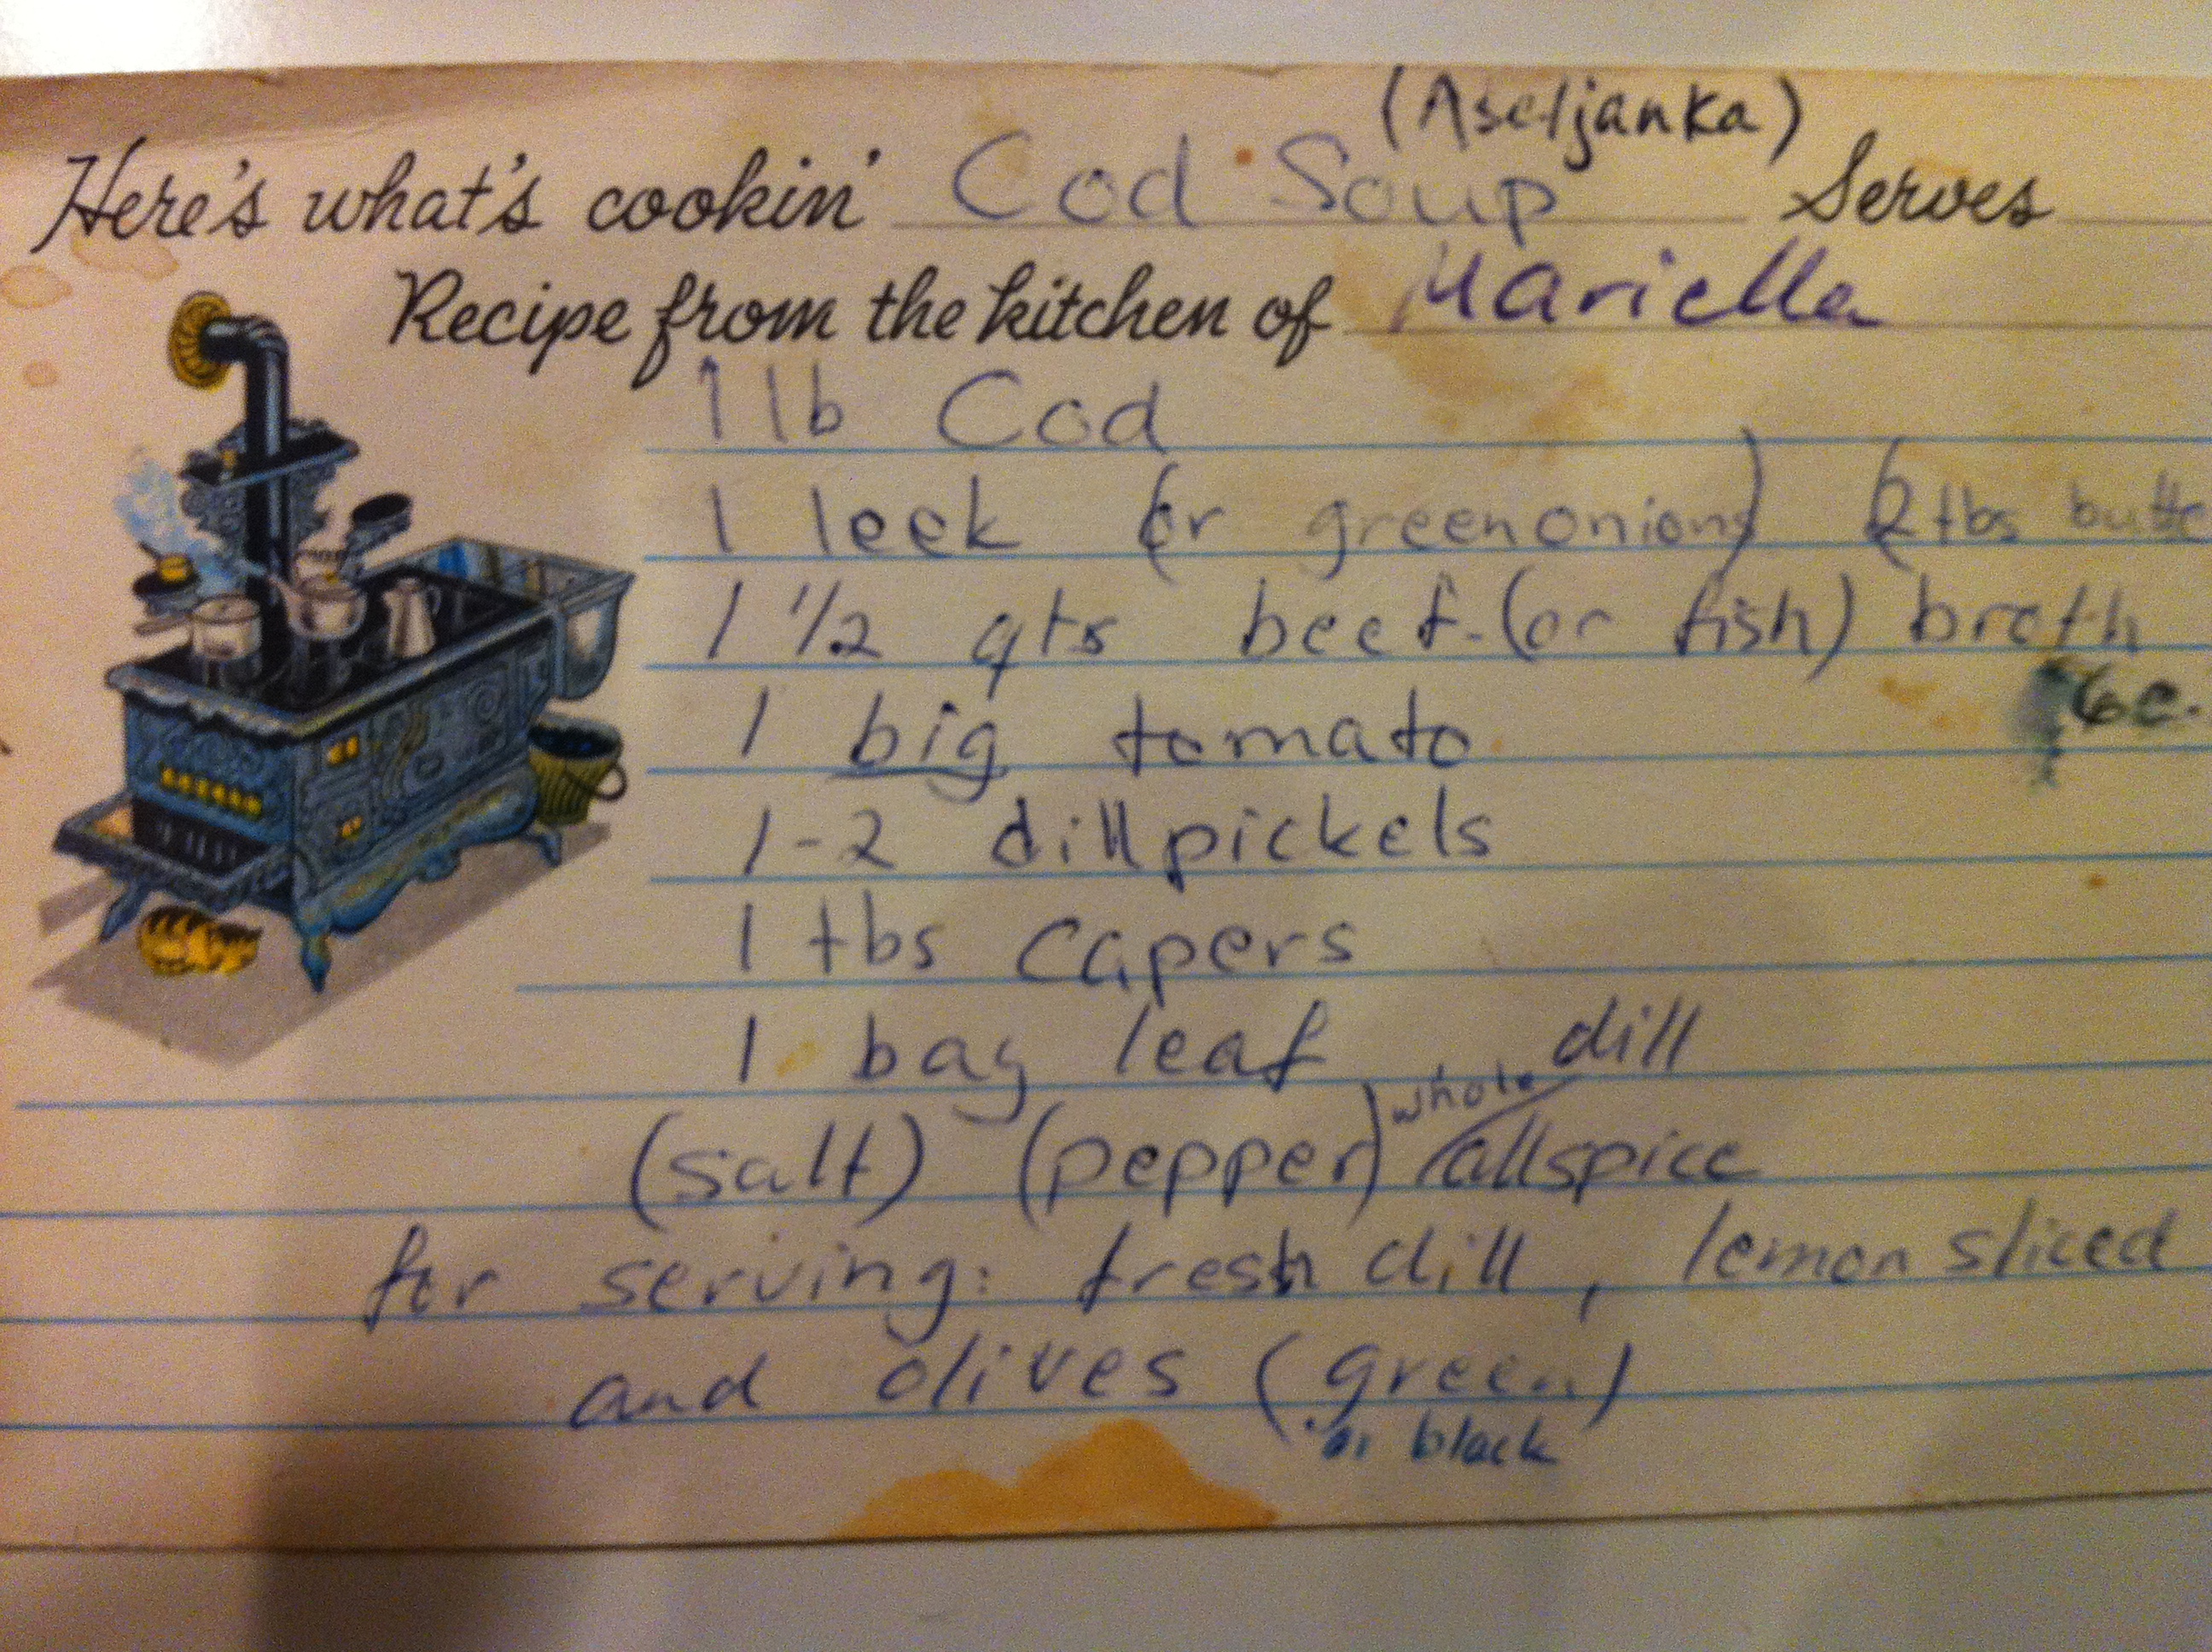 (Aseljanka)
Here's what's cookin' Cod Soup Serves
Recipe from the kitchen of Mariella
1 lb Cod
1 leek (or greenonions) (2 tbs butte
1 1/2 qts beef (or fish) broth
6c.
1 big tomato
1-2 dillpickels
1 tbs capers
1 bay leaf dill
(salt) (pepper) whole allspice
for serving: fresh dill, lemon sliced
and olives (green)
or black